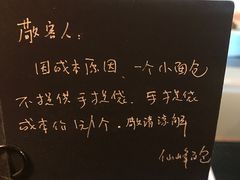 敬客人：
因成本原因、一个小面包
不提供手提袋、手提袋
成本价1元/个. 敬请凉解